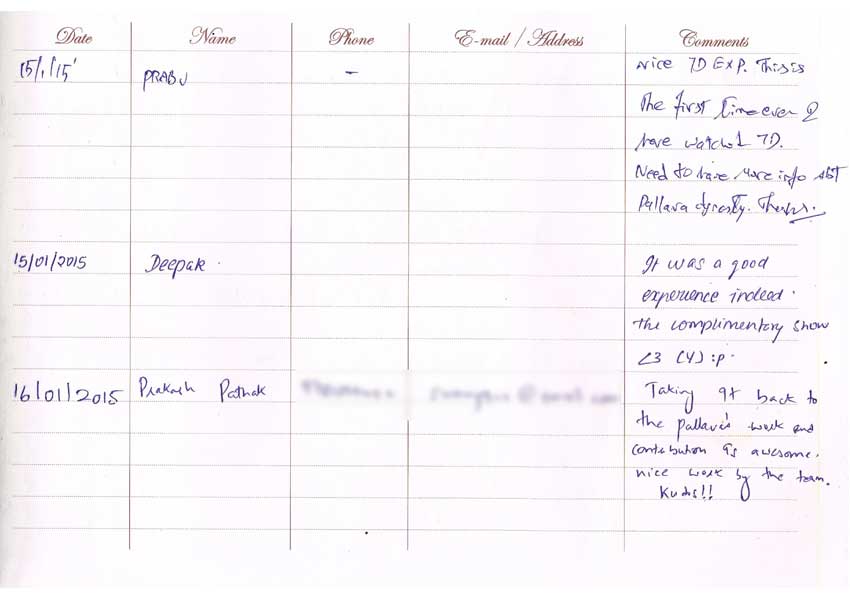 Date Name Phone E-mail / Address Comments
15/1/15' PRABU - Nice 7D EXP. This is
The first time ever I
have watched 7D.
Need to have More info Abt
Pallava dynasty. Thanks.
15/01/2015 Deepak. It was a good
experience indeed.
the complimentary show
<3 (Y) :p.
16/01/2015 Prakash Pathak Taking It back to
the pallava's work and
contribution is awesome.
nice work by the team.
Kudos!!